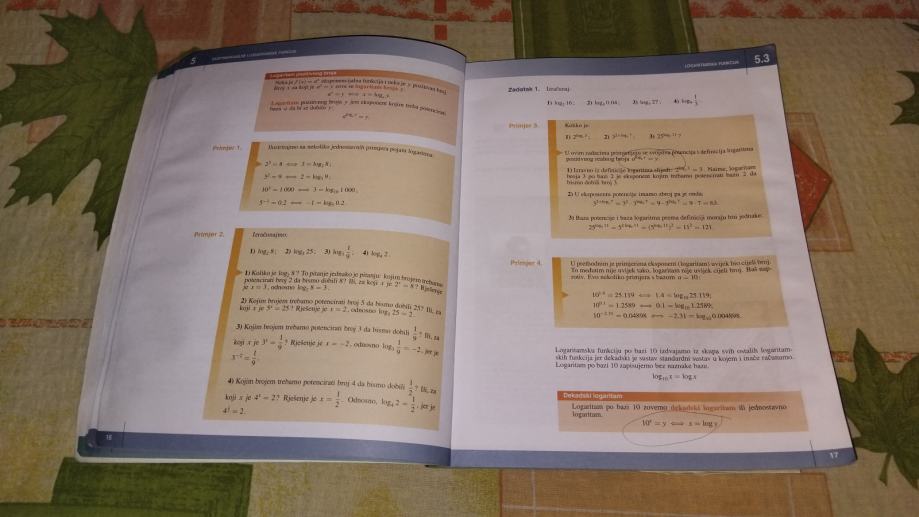 5 EKSPONENCIJALNE I LOGARITAMSKE FUNKCIJE
Logaritam pozitivnog broja
Neka je f(x) = aˣ eksponencijalna funkcija i neka je y pozitivan broj.
Broj x za koji je aˣ = y zove se logaritam broja y:
aˣ = y ⟺ x = logₐ y.
Logaritam pozitivnog broja y jest eksponent kojim treba potencirati
bazu a da bi se dobilo y:
a^(logₐ y) = y.
Primjer 1.
Ilustrirajmo na nekoliko jednostavnih primjera pojam logaritma:
2³ = 8 ⟺ 3 = log₂ 8;
3² = 9 ⟺ 2 = log₃ 9;
10³ = 1 000 ⟺ 3 = log₁₀ 1 000,
5⁻¹ = 0.2 ⟺ −1 = log₅ 0.2.
Primjer 2.
Izračunajmo:
1) log₂ 8; 2) log₅ 25; 3) log₃ 1/9; 4) log₄ 2.
1) Koliko je log₂ 8? To pitanje jednako je pitanju: kojim brojem trebamo
potencirati broj 2 da bismo dobili 8? Ili, za koji x je 2ˣ = 8? Rješenje
je x = 3, odnosno log₂ 8 = 3.
2) Kojim brojem trebamo potencirati broj 5 da bismo dobili 25? Ili, za
koji x je 5ˣ = 25? Rješenje je x = 2, odnosno log₅ 25 = 2.
3) Kojim brojem trebamo potencirati broj 3 da bismo dobili 1/9? Ili, za
koji x je 3ˣ = 1/9? Rješenje je x = −2, odnosno log₃ 1/9 = −2, jer je
3⁻² = 1/9.
4) Kojim brojem trebamo potencirati broj 4 da bismo dobili 1/2? Ili, za
koji x je 4ˣ = 2? Rješenje je x = 1/2. Odnosno, log₄ 2 = 1/2, jer je
4^(1/2) = 2.
16
LOGARITAMSKA FUNKCIJA 5.3
Zadatak 1. Izračunaj:
1) log₂ 16; 2) log₅ 0.04; 3) log₃ 27; 4) log₉ 1/3
Primjer 3.
Koliko je:
1) 2^(log₂ 3); 2) 3^(2+log₃ 7); 3) 25^(log₅ 11)?
U ovim zadatcima primjenjuju se svojstva potencija i definicija logaritma
pozitivnog realnog broja a^(logₐ y) = y
1) Izravno iz definicije logaritma slijedi: 2^(log₂ 3) = 3. Naime, logaritam
broja 3 po bazi 2 je eksponent kojim trebamo potencirati bazu 2 da
bismo dobili broj 3.
2) U eksponentu potencije imamo zbroj pa je onda:
3^(2+log₃ 7) = 3² · 3^(log₃ 7) = 9 · 3^(log₃ 7) = 9 · 7 = 63.
3) Baza potencije i baza logaritma prema definiciji moraju biti jednake:
25^(log₅ 11) = 5^(2 log₅ 11) = (5^(log₅ 11))² = 11² = 121.
Primjer 4.
U prethodnim je primjerima eksponent (logaritam) uvijek bio cijeli broj.
To međutim nije uvijek tako, logaritam nije uvijek cijeli broj. Baš nap-
rotiv. Evo nekoliko primjera s bazom a = 10:
10^1.4 = 25.119 ⟺ 1.4 = log₁₀ 25.119;
10^0.1 = 1.2589 ⟺ 0.1 = log₁₀ 1.2589;
10^−2.31 = 0.04898 ⟺ −2.31 = log₁₀ 0.004898.
Logaritamsku funkciju po bazi 10 izdvajamo iz skupa svih ostalih logaritam-
skih funkcija jer dekadski je sustav standardni sustav u kojem i inače računamo.
Logaritam po bazi 10 zapisujemo bez naznake baze.
log₁₀ x = log x
Dekadski logaritam
Logaritam po bazi 10 zovemo dekadski logaritam ili jednostavno
logaritam.
10ˣ = y ⟺ x = log y
17